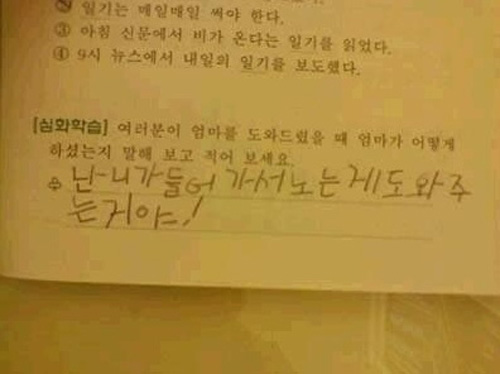 ② 일기는 매일매일 써야 한다.
③ 아침 신문에서 비가 온다는 일기를 읽었다.
④ 9시 뉴스에서 내일의 일기를 보도했다.
[심화학습] 여러분이 엄마를 도와드렸을 때 엄마가 어떻게
하셨는지 말해 보고 적어 보세요.
➪ 난 니가 들어 가서 노는게 도와주
는거야!